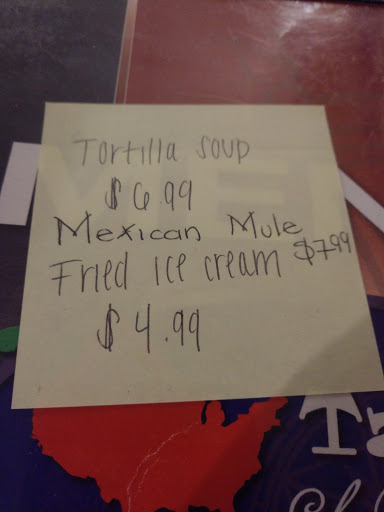 Tortilla soup
$6.99
Mexican Mule
$7.99
Fried ice cream
$4.99